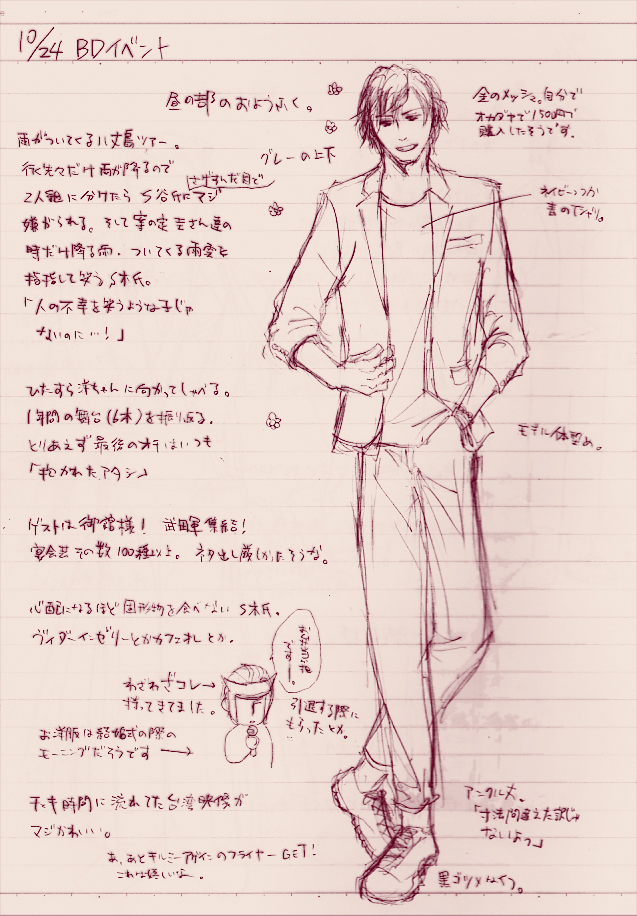 10/24 BDイベント
昼の部のおようふく。
金のメッシュ。自分で
オカダヤで1500円で
購入したそうです。
グレーの上下
雨がついてくる八丈島ツアー。
行く先々だけ雨が降るので
さげすんだ目で
2人組に分けたら S谷氏にマジ
嫌がられる。そして案の定 圭さん達の
時だけ降る雨。ついてくる雨雲を
指指して笑うS本氏。
「人の不幸を笑うような子じゃ
ないのに…!」
ネイビーっつか
青のTシャツ。
ひたすら洋ちゃんに向かってしゃべる。
1年間の舞台(6本)を振り返る。
とりあえず最後のオチはいつも
「抱かれたアタシ」
モデル体型め。
ゲストは御館様! 武田軍集結!
宴会芸その数100種以上。ネタ出し厳しかったそうな。
心配になるほど固形物を食べない S本氏。
ヴィダーインゼリーとかカフェオレとか。
わざわざコレ→
持ってきてました。
引退する際に
もらったとか。
お洋服は結婚式の際の
モーニングだそうです→
チェキ時間に流れてた台湾映像が
マジかわいい。
あ、あとキルミーアゲインのフライヤーGET!
これは嬉しいな。
アンクル丈。
「寸法間違えた訳じゃ
ないよっ」
黒ゴツメなくつ。